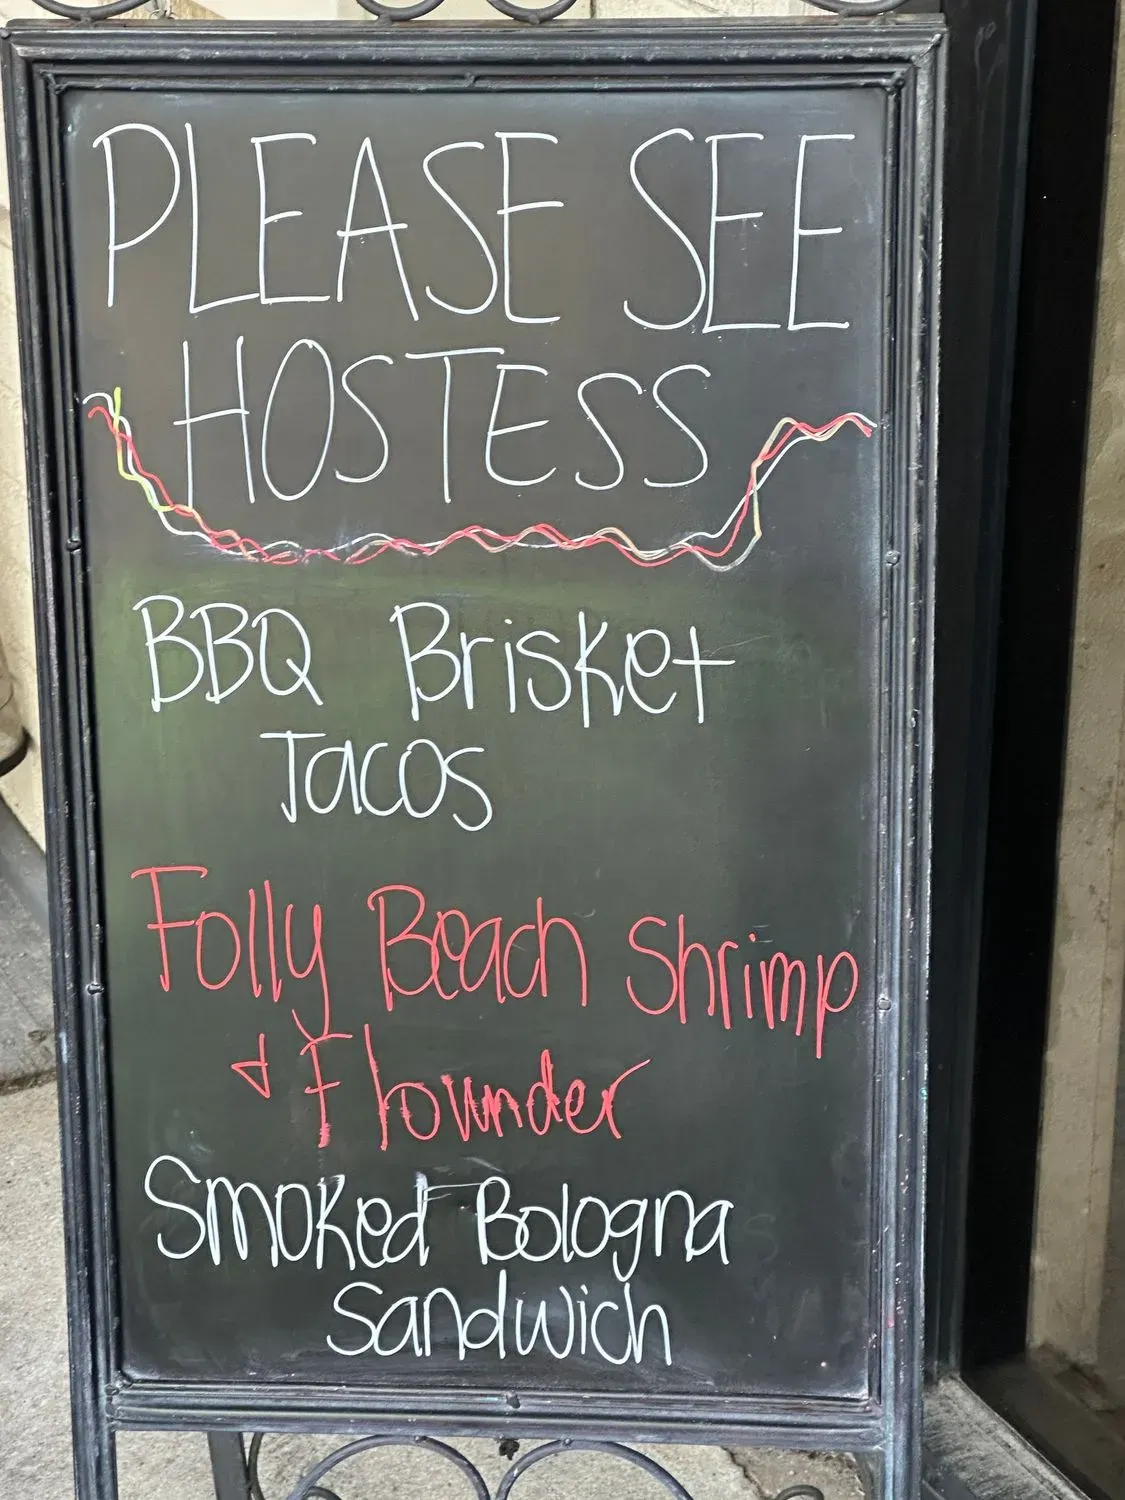 PLEASE SEE
HOSTESS
BBQ Brisket
Tacos
Folly Beach Shrimp
& Flounder
Smoked Bologna
Sandwich